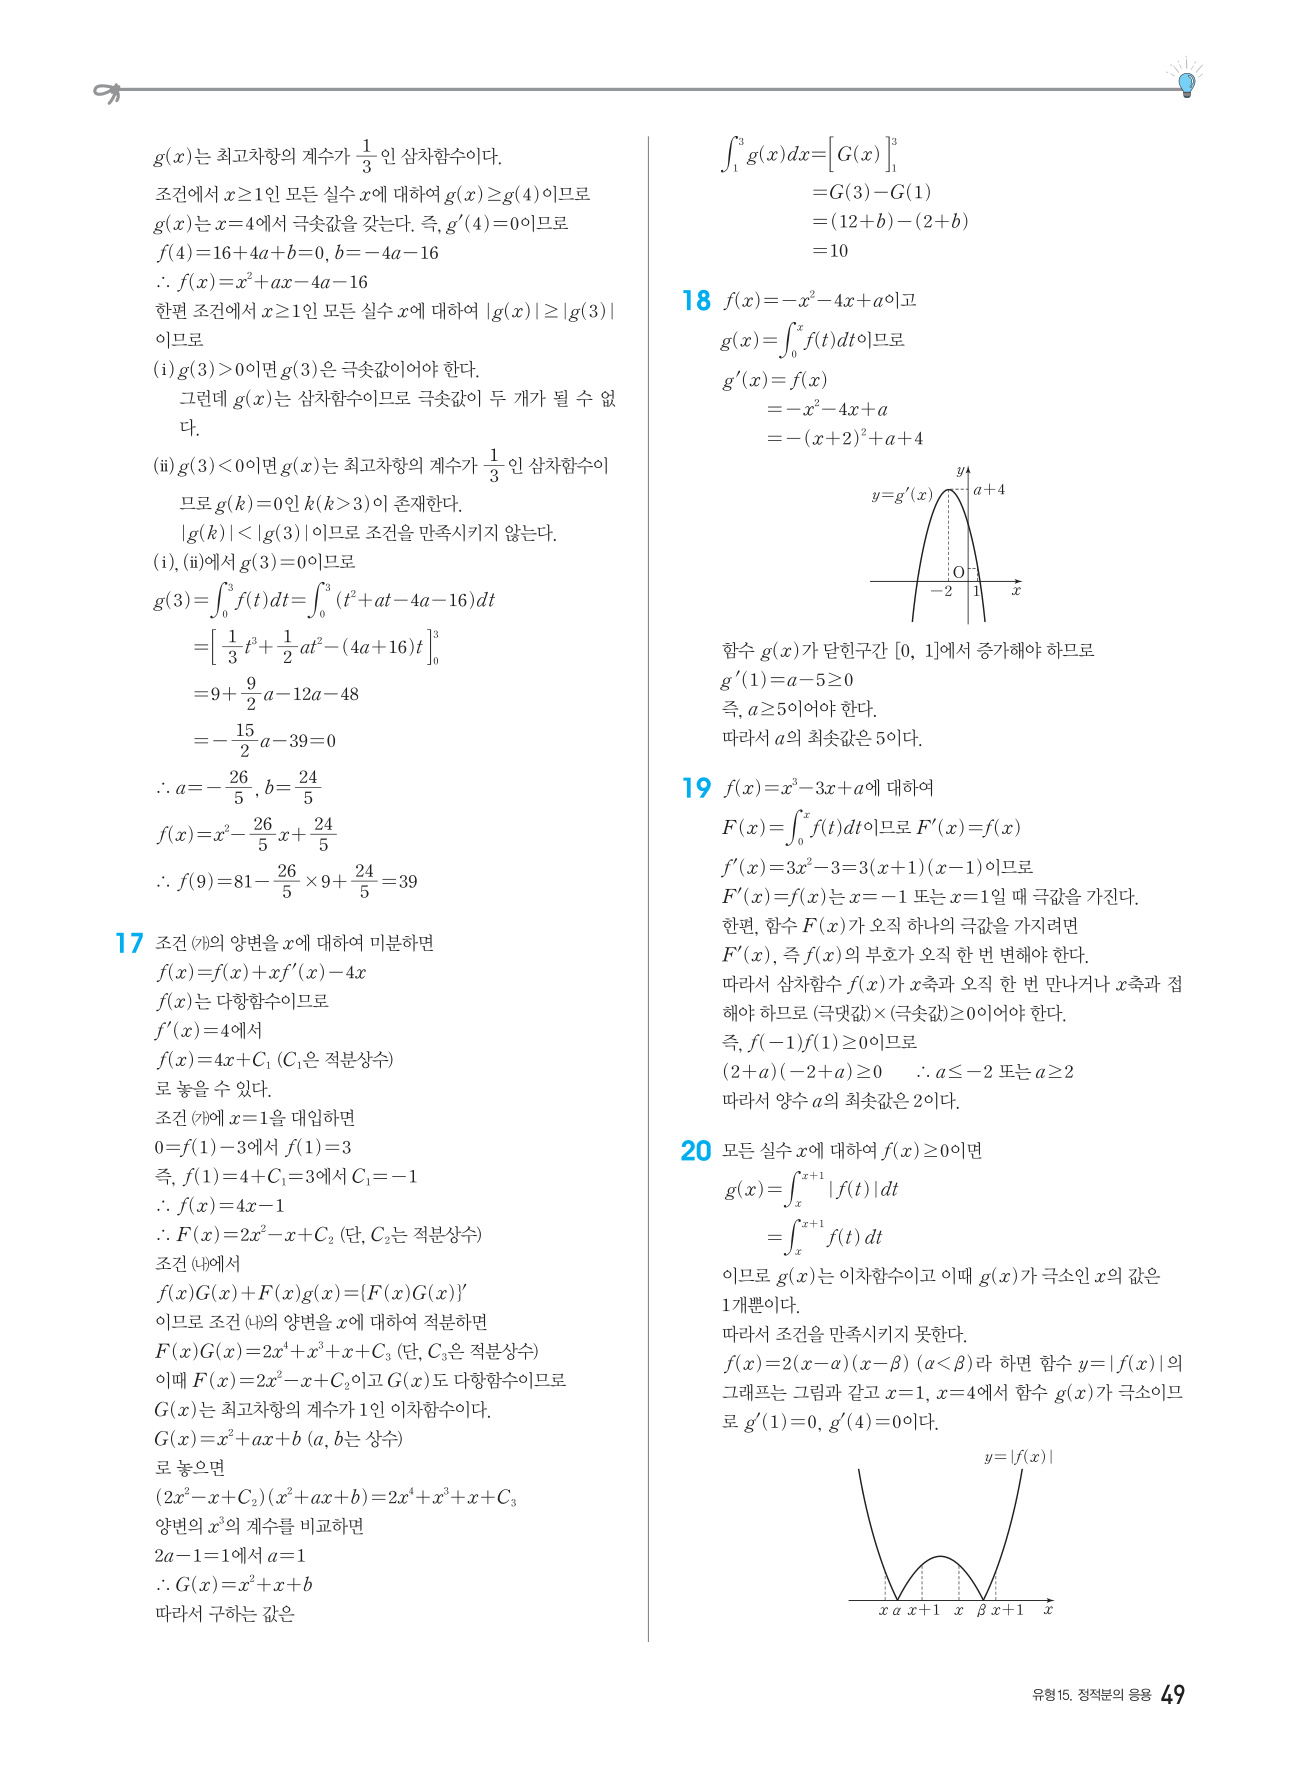 g(x)는 최고차항의 계수가 1/3인 삼차함수이다.
조건에서 x≥1인 모든 실수 x에 대하여 g(x)≥g(4)이므로
g(x)는 x=4에서 극솟값을 갖는다. 즉, g′(4)=0이므로
f(4)=16+4a+b=0, b=-4a-16
∴ f(x)=x²+ax-4a-16
한편 조건에서 x≥1인 모든 실수 x에 대하여 |g(x)|≥|g(3)|
이므로
(ⅰ) g(3)>0이면 g(3)은 극솟값이어야 한다.
그런데 g(x)는 삼차함수이므로 극솟값이 두 개가 될 수 없
다.
(ⅱ) g(3)<0이면 g(x)는 최고차항의 계수가 1/3인 삼차함수이
므로 g(k)=0인 k(k>3)이 존재한다.
|g(k)|<|g(3)|이므로 조건을 만족시키지 않는다.
(ⅰ), (ⅱ)에서 g(3)=0이므로
g(3)=∫₀³ f(t)dt=∫₀³ (t²+at-4a-16)dt
=[1/3 t³+1/2 at²-(4a+16)t]₀³
=9+9/2 a-12a-48
=-15/2 a-39=0
∴ a=-26/5, b=24/5
f(x)=x²-26/5 x+24/5
∴ f(9)=81-26/5×9+24/5=39
17 조건 ㈎의 양변을 x에 대하여 미분하면
f(x)=f(x)+xf′(x)-4x
f(x)는 다항함수이므로
f′(x)=4에서
f(x)=4x+C₁ (C₁은 적분상수)
로 놓을 수 있다.
조건 ㈎에 x=1을 대입하면
0=f(1)-3에서 f(1)=3
즉, f(1)=4+C₁=3에서 C₁=-1
∴ f(x)=4x-1
∴ F(x)=2x²-x+C₂ (단, C₂는 적분상수)
조건 ㈏에서
f(x)G(x)+F(x)g(x)={F(x)G(x)}′
이므로 조건 ㈏의 양변을 x에 대하여 적분하면
F(x)G(x)=2x⁴+x³+x+C₃ (단, C₃은 적분상수)
이때 F(x)=2x²-x+C₂이고 G(x)도 다항함수이므로
G(x)는 최고차항의 계수가 1인 이차함수이다.
G(x)=x²+ax+b (a, b는 상수)
로 놓으면
(2x²-x+C₂)(x²+ax+b)=2x⁴+x³+x+C₃
양변의 x³의 계수를 비교하면
2a-1=1에서 a=1
∴ G(x)=x²+x+b
따라서 구하는 값은
∫₁³ g(x)dx=[G(x)]₁³
=G(3)-G(1)
=(12+b)-(2+b)
=10
18 f(x)=-x²-4x+a이고
g(x)=∫₀ˣ f(t)dt이므로
g′(x)=f(x)
=-x²-4x+a
=-(x+2)²+a+4
y
y=g′(x) a+4
O
-2 1 x
함수 g(x)가 닫힌구간 [0, 1]에서 증가해야 하므로
g′(1)=a-5≥0
즉, a≥5이어야 한다.
따라서 a의 최솟값은 5이다.
19 f(x)=x³-3x+a에 대하여
F(x)=∫₀ˣ f(t)dt이므로 F′(x)=f(x)
f′(x)=3x²-3=3(x+1)(x-1)이므로
F′(x)=f(x)는 x=-1 또는 x=1일 때 극값을 가진다.
한편, 함수 F(x)가 오직 하나의 극값을 가지려면
F′(x), 즉 f(x)의 부호가 오직 한 번 변해야 한다.
따라서 삼차함수 f(x)가 x축과 오직 한 번 만나거나 x축과 접
해야 하므로 (극댓값)×(극솟값)≥0이어야 한다.
즉, f(-1)f(1)≥0이므로
(2+a)(-2+a)≥0 ∴ a≤-2 또는 a≥2
따라서 양수 a의 최솟값은 2이다.
20 모든 실수 x에 대하여 f(x)≥0이면
g(x)=∫ₓˣ⁺¹ |f(t)|dt
=∫ₓˣ⁺¹ f(t)dt
이므로 g(x)는 이차함수이고 이때 g(x)가 극소인 x의 값은
1개뿐이다.
따라서 조건을 만족시키지 못한다.
f(x)=2(x-α)(x-β) (α<β)라 하면 함수 y=|f(x)|의
그래프는 그림과 같고 x=1, x=4에서 함수 g(x)가 극소이므
로 g′(1)=0, g′(4)=0이다.
y=|f(x)|
x α x+1 x β x+1 x
유형15. 정적분의 응용 49